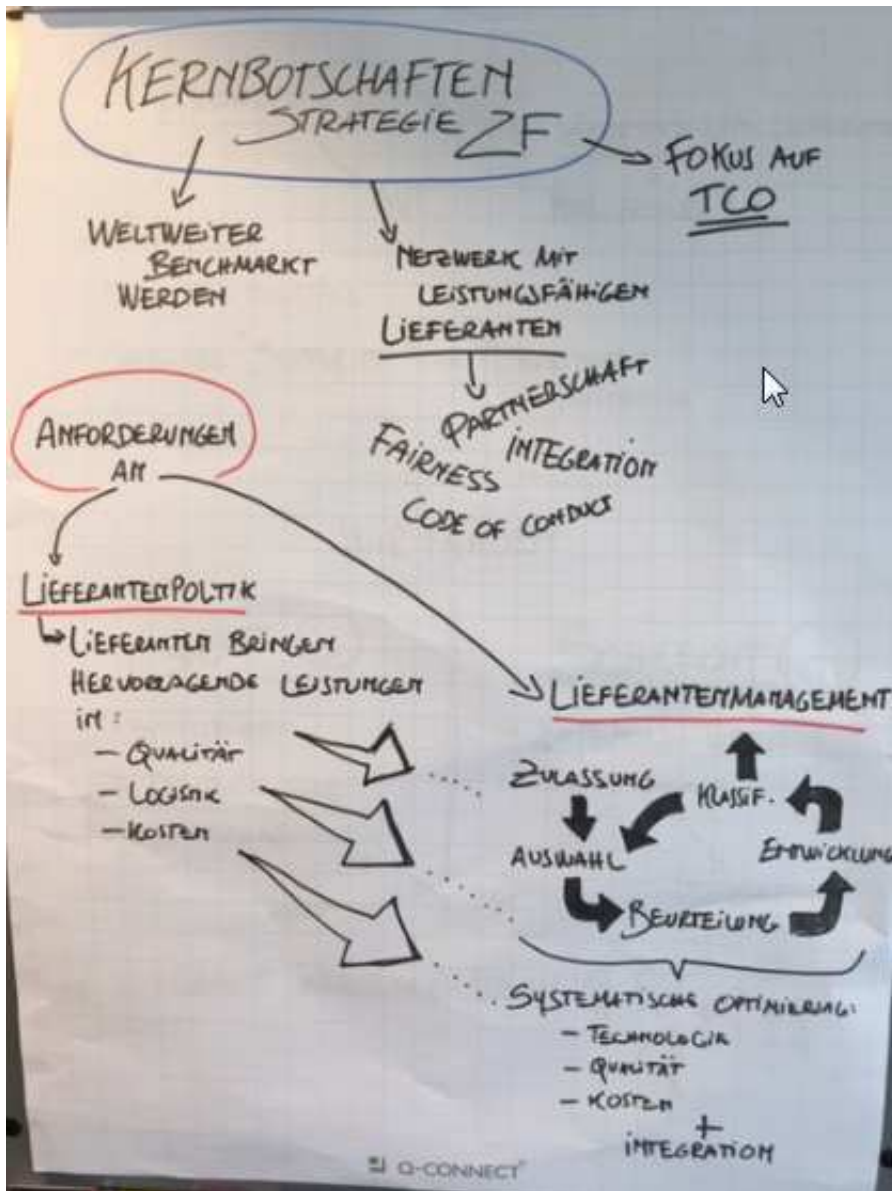 KERNBOTSCHAFTEN
STRATEGIE ZF
FOKUS AUF
TCO
WELTWEITER
BENCHMARKT
WERDEN
NETZWERK MIT
LEISTUNGSFÄHIGEN
LIEFERANTEN
PARTNERSCHAFT
FAIRNESS
INTEGRATION
CODE OF CONDUCT
ANFORDERUNGEN
AN
LIEFERANTENPOLTIK
LIEFERANTEN BRINGEN
HERVORRAGENDE LEISTUNGEN
IN:
– QUALITÄT
– LOGISTIK
– KOSTEN
LIEFERANTENMANAGEMENT
ZULASSUNG
KLASSIF.
AUSWAHL
ENTWICKLUNG
BEURTEILUNG
SYSTEMATISCHE OPTIMIERUNG:
– TECHNOLOGIE
– QUALITÄT
– KOSTEN
+
INTEGRATION
Q-CONNECT®